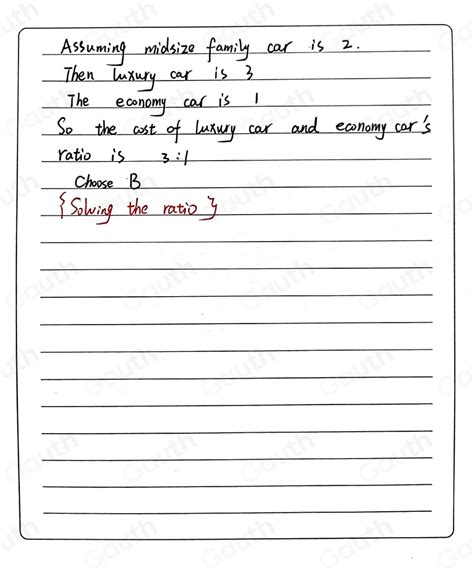 Assuming midsize family car is 2.
Then luxury car is 3
The economy car is 1
So the cost of luxury car and economy car's
ratio is 3:1
Choose B
{Solving the ratio}